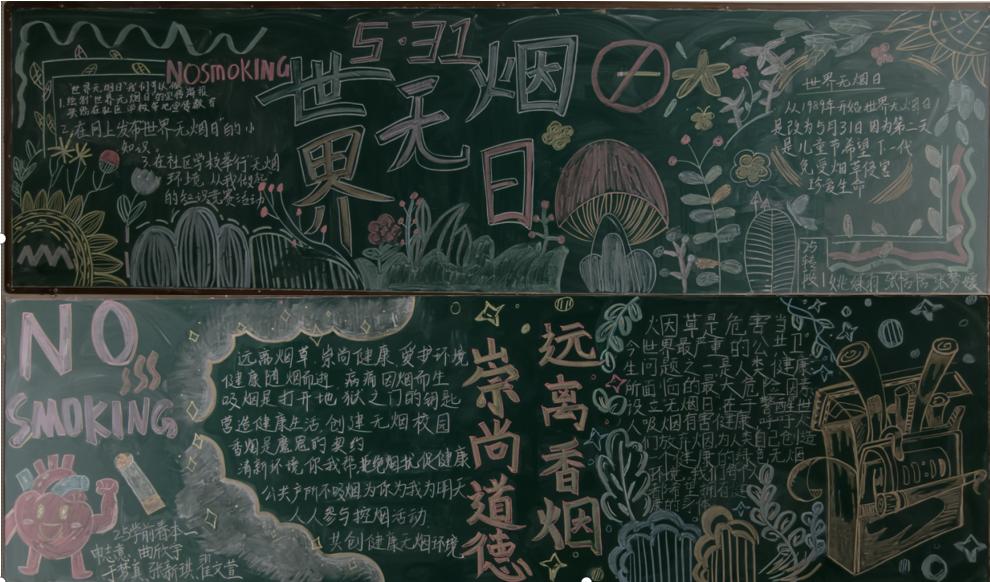 NOSMOKING
5·31
世界无烟日
2.在网上发布"世界无烟日"的小
知识。
3.在社区学校举行无烟
环境,从我做起
的知识竞赛活动
世界无烟日
从1989年开始世界无烟日
是改为5月31日因为第二天
是儿童节希望下一代
免受烟草侵害
珍爱生命
NO
SMOKING
25学前普本一
于梦真 张新琪 翟文萱
远离烟草 崇尚健康 爱护环境
健康随烟而逝 病痛因烟而生
吸烟是打开地狱之门的钥匙
营造健康生活,创建无烟校园
香烟是魔鬼的契约
清新环境,你我希拒绝烟扰促健康
公共产所不吸烟为你为我为明天
人人参与控烟活动
共创健康无烟环境
崇尚道德
远离香烟
火因草是危害当
今世界最严重的公共卫
生问题之一是人类健康
所面临的最大危险因素
设立无烟日在于警醒世
人吸烟有害健康,呼于人
们放弃烟为人类自己创造
一个健康的绿色无烟
环境。